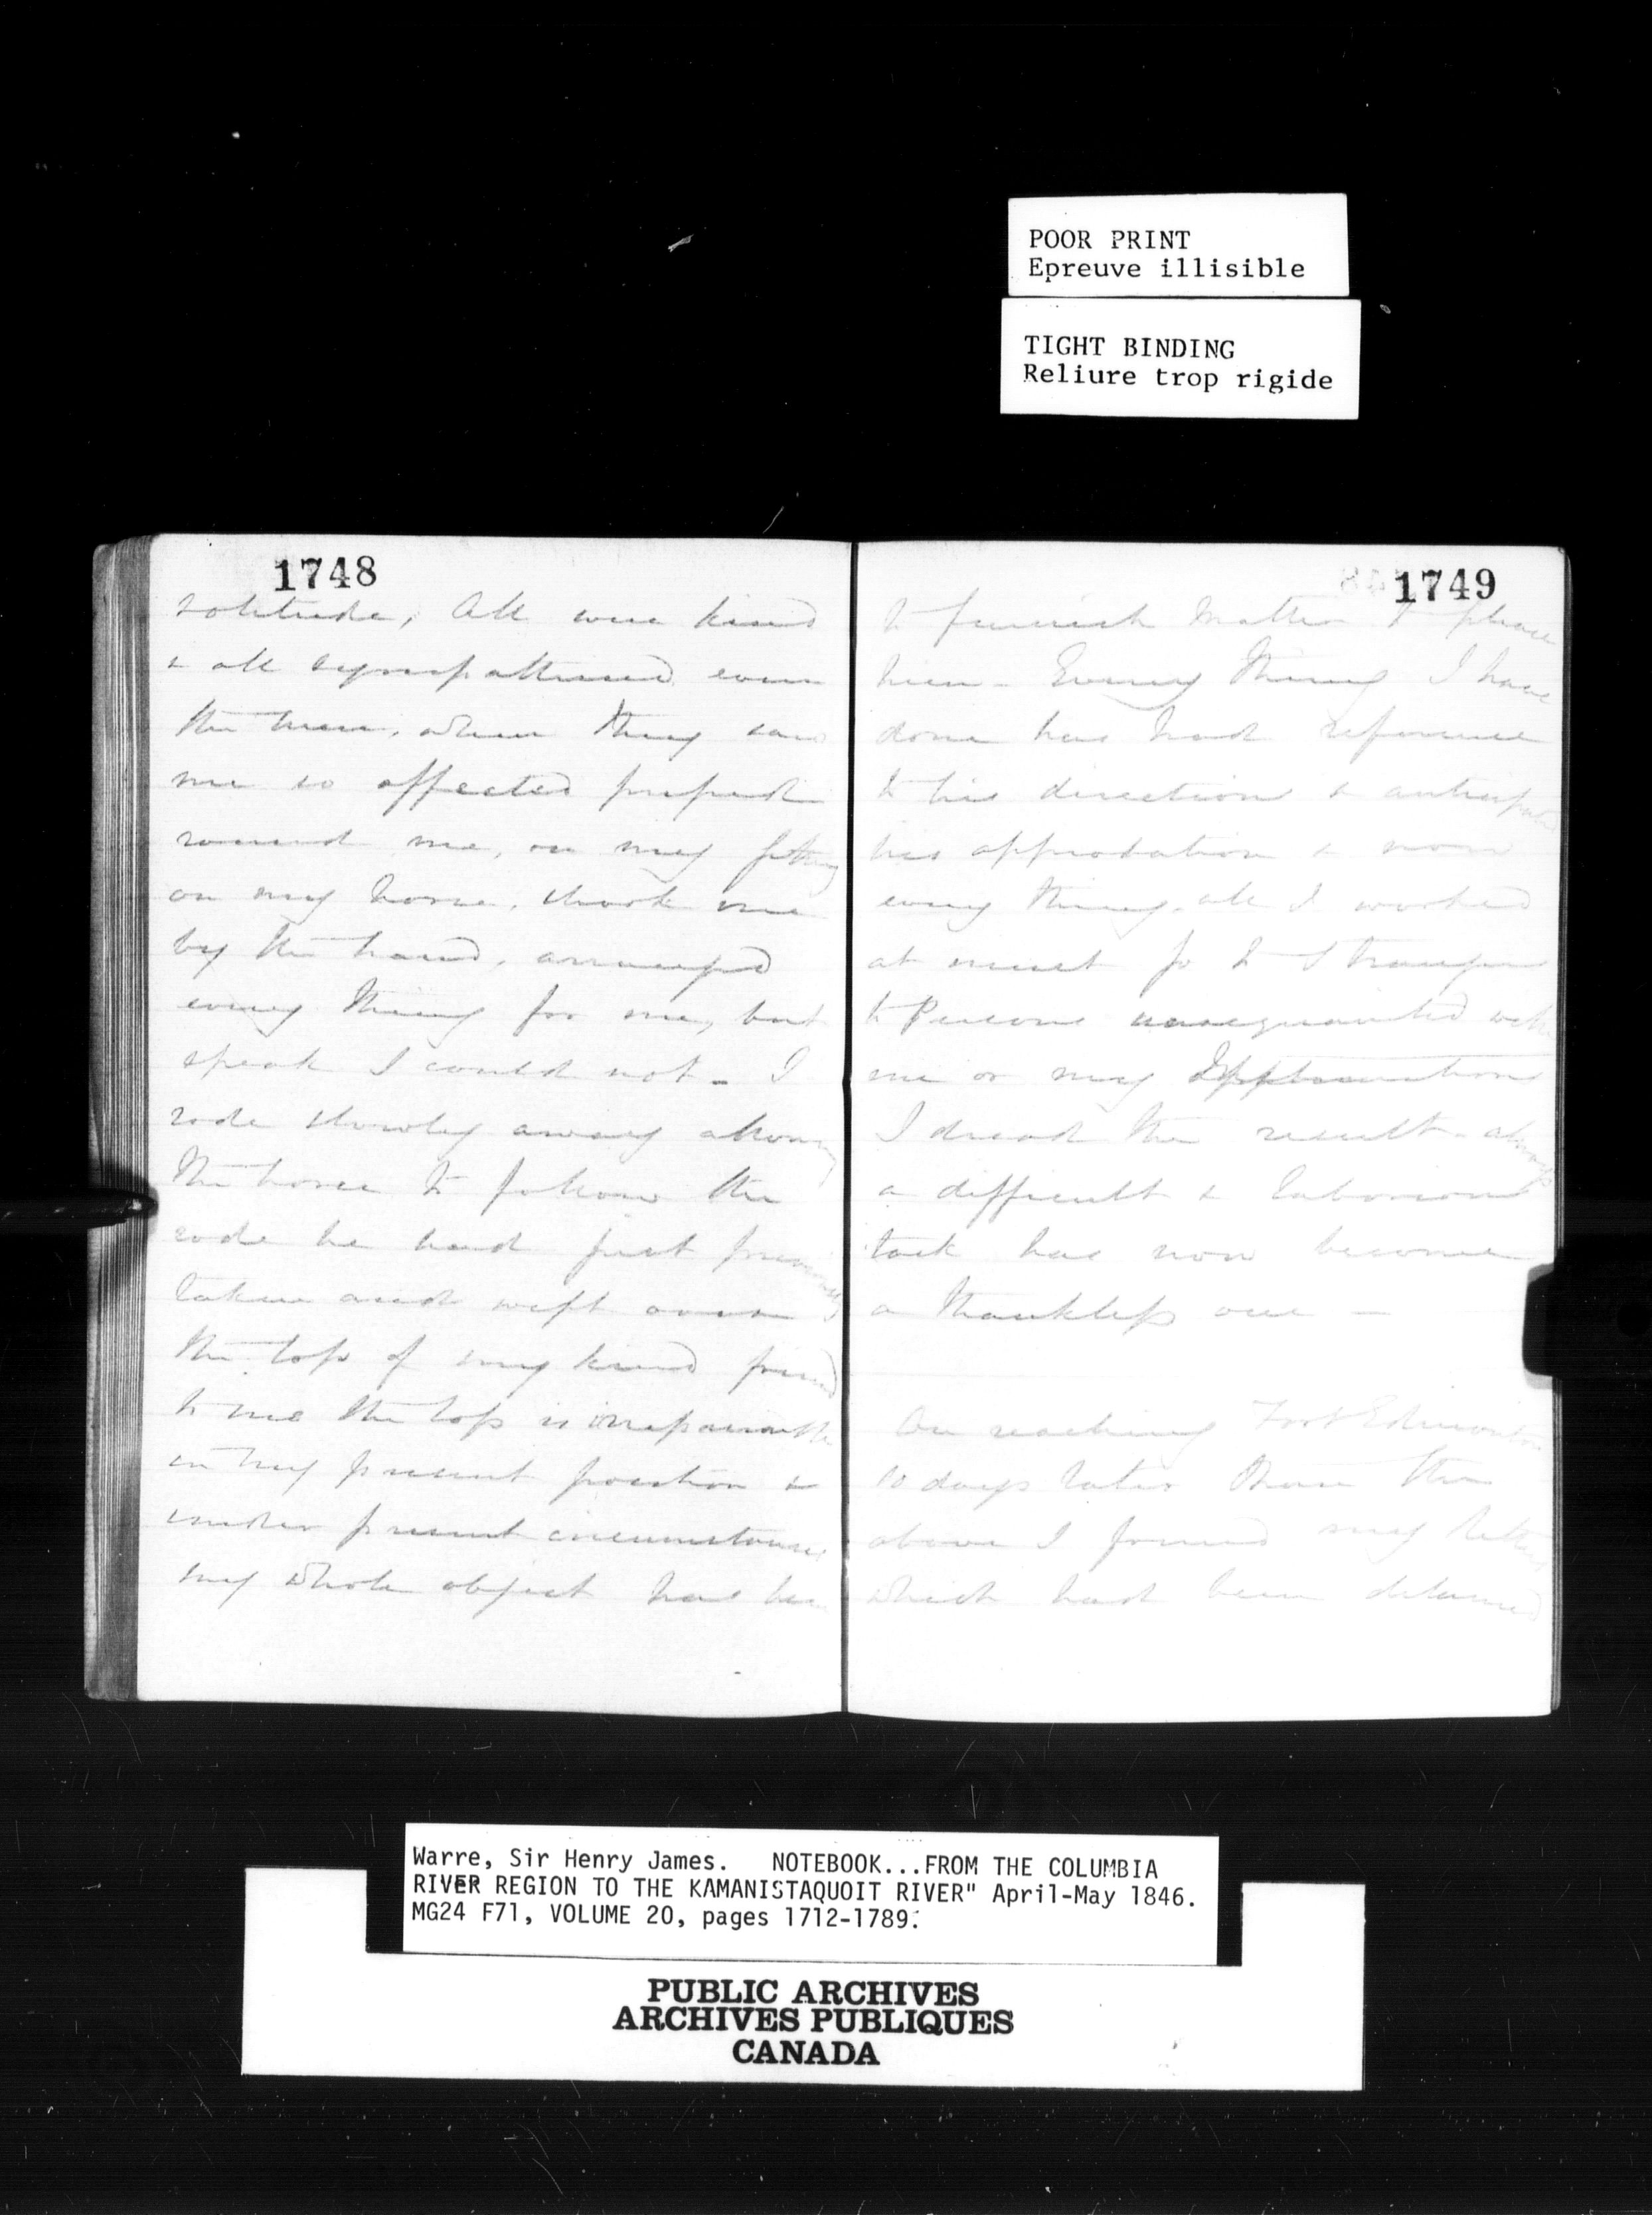 POOR PRINT
Epreuve illisible
TIGHT BINDING
Reliure trop rigide
1748
solitude, All were kind
& all sympathised even
the men, when they saw
me so affected
round me, on my getting
on my horse, shook me
by the hand, arranged
every thing for me, but
speak I could not - I
rode slowly away allowing
the horse to follow the
rode he had just previously
taken and wept over
the loss of my kind friend
to me the loss is irreparable
in my present position &
under present circumstances
my whole object has been
1749
to furnish matter to please
him - Every thing I have
done has had reference
to his directions &
his approbation & now
every thing, all I worked
at must go to Strangers
to Persons unacquainted with
me or my
I dread the result - always
a difficult & laborious
task has now become
a thankless one -
On reaching Fort Edmonton
10 days later than the
above I found my letters
which had been detained
Warre, Sir Henry James. NOTEBOOK...FROM THE COLUMBIA
RIVER REGION TO THE KAMANISTAQUOIT RIVER" April-May 1846.
MG24 F71, VOLUME 20, pages 1712-1789.
PUBLIC ARCHIVES
ARCHIVES PUBLIQUES
CANADA